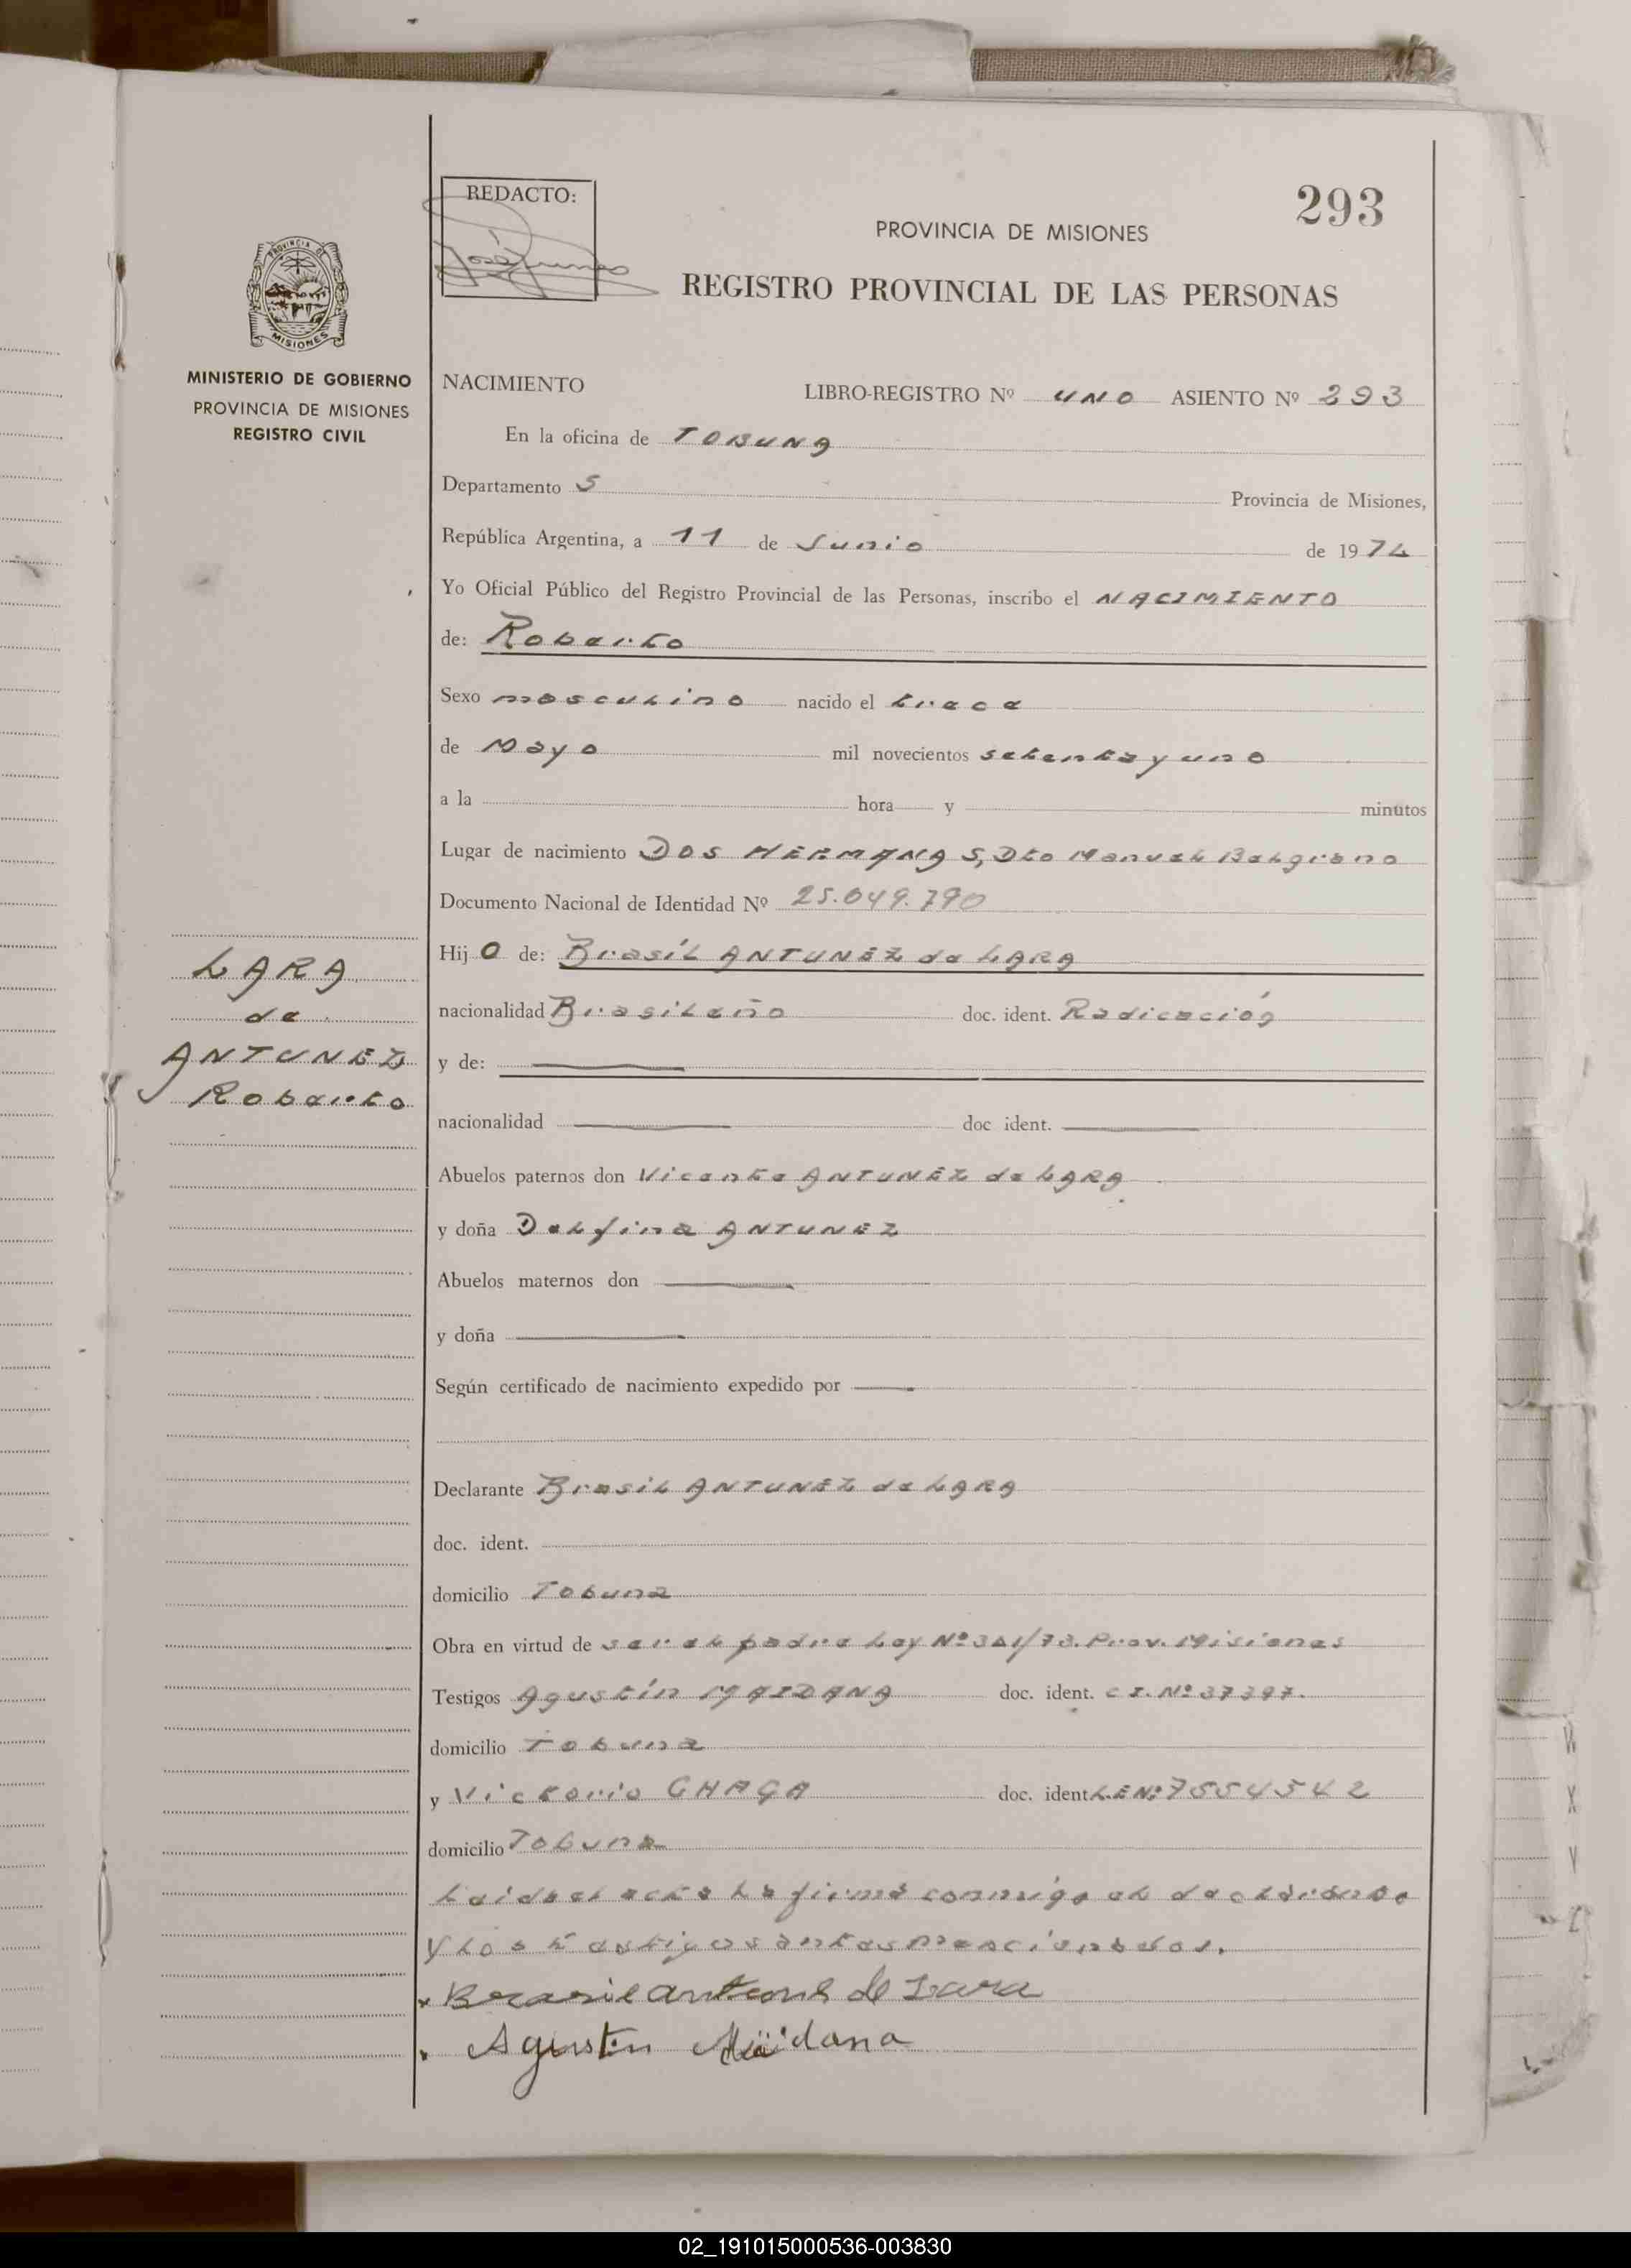 293
REDACTO:
PROVINCIA DE MISIONES
REGISTRO PROVINCIAL DE LAS PERSONAS
PROVINCIA DE
MISIONES
MINISTERIO DE GOBIERNO
PROVINCIA DE MISIONES
REGISTRO CIVIL
NACIMIENTO LIBRO-REGISTRO Nº UNO ASIENTO Nº 293
En la oficina de TOBUNA
Departamento 5 Provincia de Misiones,
República Argentina, a 11 de Junio de 1974
Yo Oficial Público del Registro Provincial de las Personas, inscribo el NACIMIENTO
de: Roberto
Sexo masculino nacido el trece
de Mayo mil novecientos setenta y uno
a la hora y minutos
Lugar de nacimiento DOS HERMANAS, Dto Manuel Belgrano
Documento Nacional de Identidad Nº 25.049.790
Hij o de: Brasil ANTUNEZ de LARA
LARA
de
ANTUNEZ
Roberto
nacionalidad Brasileño doc. ident. Radicación
y de:
nacionalidad doc ident.
Abuelos paternos don Vicente ANTUNEZ de LARA
y doña Delfina ANTUNEZ
Abuelos maternos don
y doña
Según certificado de nacimiento expedido por
Declarante Brasil ANTUNEZ de LARA
doc. ident.
domicilio Tobuna
Obra en virtud de ser el padre Ley Nº 341/73. Prov. Misiones
Testigos Agustín MAIDANA doc. ident. C I. Nº 37397.
domicilio Tobuna
y Victorio CHAGA doc. ident L.E Nº 7554542
domicilio Tobuna
Leida el acta la firma conmigo el declarante
y los testigos antes mencionados.
Brasil de Lara
Agustin Maidana
W
X
Y
02_191015000536-003830